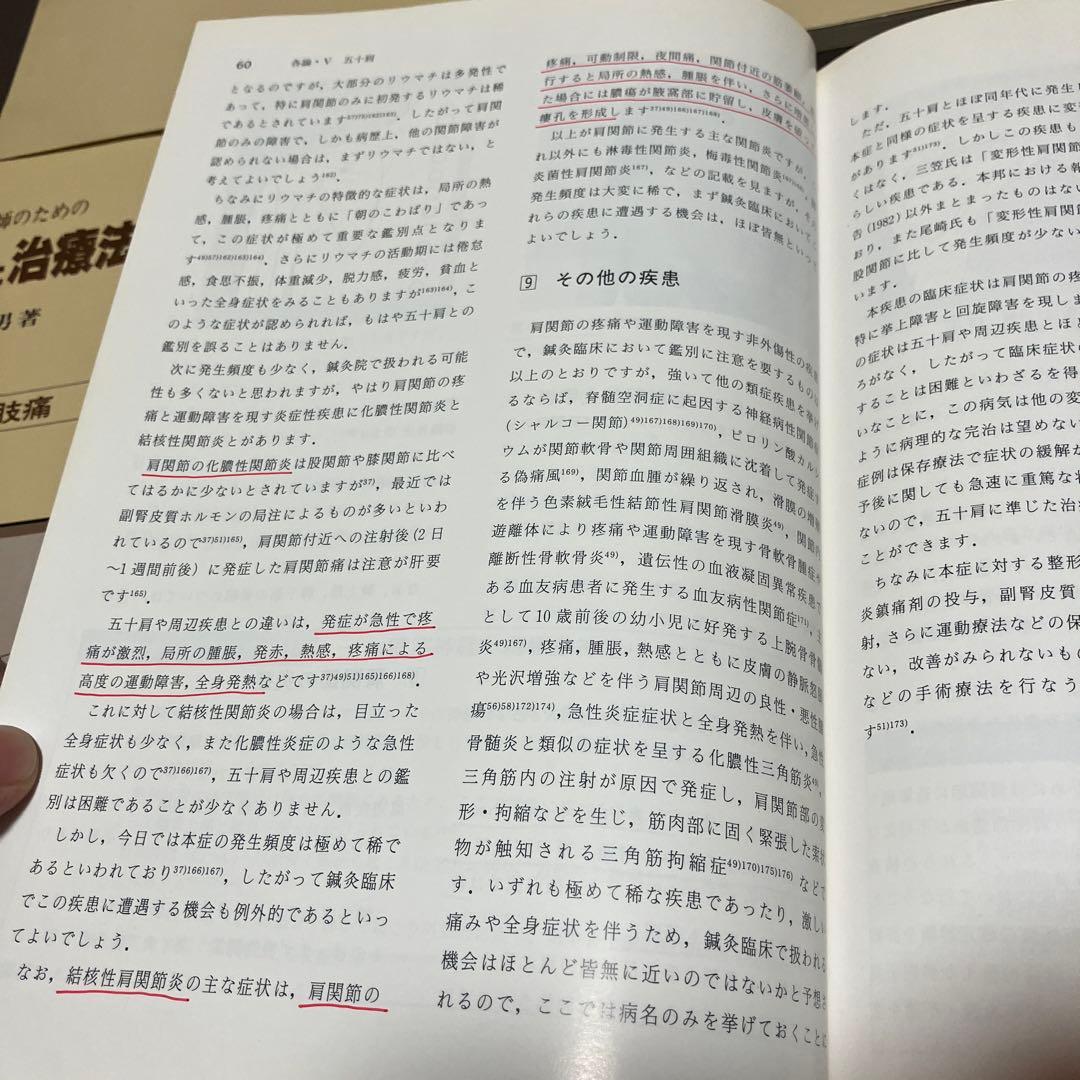 60 各論・V 五十肩
となるのですが，大部分のリウマチは多発性で
あって，特に肩関節のみに初発するリウマチは稀
であるとされています37)73)162)163)．したがって肩関
節のみの障害で，しかも病歴上，他の関節障害が
認められない場合は，まずリウマチではない，と
考えてよいでしょう162)．
ちなみにリウマチの特徴的な症状は，局所の熱
感，腫脹，疼痛とともに「朝のこわばり」であっ
て，この症状が極めて重要な鑑別点となりま
す49)57)162)163)164)．さらにリウマチの活動期には倦怠
感，食思不振，体重減少，脱力感，疲労，貧血と
いった全身症状をみることもありますが163)164)，こ
のような症状が認められれば，もはや五十肩との
鑑別を誤ることはありません．
次に発生頻度も少なく，鍼灸院で扱われる可能
性も多くないと思われますが，やはり肩関節の疼
痛と運動障害を現す炎症性疾患に化膿性関節炎と
結核性関節炎とがあります．
肩関節の化膿性関節炎は股関節や膝関節に比べ
てはるかに少ないとされていますが37)，最近では
副腎皮質ホルモンの局注によるものが多いといわ
れているので37)51)165)，肩関節付近への注射後(2日
〜1週間前後)に発症した肩関節痛は注意が肝要
です165)．
五十肩や周辺疾患との違いは，発症が急性で疼
痛が激烈，局所の腫脹，発赤，熱感，疼痛による
高度の運動障害，全身発熱などです37)49)51)165)166)168)．
これに対して結核性関節炎の場合は，目立った
全身症状も少なく，また化膿性炎症のような急性
症状も欠くので37)166)167)，五十肩や周辺疾患との鑑
別は困難であることが少なくありません．
しかし，今日では本症の発生頻度は極めて稀で
あるといわれており37)166)167)，したがって鍼灸臨床
でこの疾患に遭遇する機会も例外的であるといっ
てよいでしょう．
なお，結核性肩関節炎の主な症状は，肩関節の
疼痛，可動制限，夜間痛，関節付近の筋萎縮，
行すると局所の熱感，腫脹を伴い，さらに
た場合には膿瘍が腋窩部に貯留し，皮膚を
瘻孔を形成します37)49)166)167)168)．
以上が肩関節に発生する主な関節炎ですが，
れ以外にも淋毒性関節炎，梅毒性関節炎
炎菌性関節炎167)，などの記載を見ますが，
発生頻度は大変に稀で，まず鍼灸臨床において
れらの疾患に遭遇する機会は，ほぼ皆無という
よいでしょう．
9 その他の疾患
肩関節の疼痛や運動障害を現す非外傷性の疾
で，鍼灸臨床において鑑別に注意を要するもの
以上のとおりですが，強いて他の類症疾患を挙げ
るならば，脊髄空洞症に起因する神経病性関節
(シャルコー関節)49)167)168)169)170)，ピロリン酸カルシ
ウムが関節軟骨や関節周囲組織に沈着して発症す
る偽痛風169)，関節血腫が繰り返され，滑膜の増
を伴う色素絨毛性結節性肩関節滑膜炎49)，関節内
遊離体により疼痛や運動障害を現す骨軟骨腫症や
離断性骨軟骨炎49)，遺伝性の血液凝固異常疾患で
ある血友病患者に発生する血友病性関節症171)，主
として10歳前後の幼小児に好発する上腕骨骨髄
炎49)167)，疼痛，腫脹，熱感とともに皮膚の静脈怒
や光沢増強などを伴う肩関節周辺の良性・悪性腫
瘍56)58)172)174)，急性炎症症状と全身発熱を伴い，急性
骨髄炎と類似の症状を呈する化膿性三角筋炎49)，
三角筋内の注射が原因で発症し，肩関節部の変
形・拘縮などを生じ，筋肉部に固く緊張した索状
物が触知される三角筋拘縮症49)170)175)176)などで
す．いずれも極めて稀な疾患であったり，激しい
痛みや全身症状を伴うため，鍼灸臨床で扱われる
機会はほとんど皆無に近いのではないかと予想さ
れるので，ここでは病名のみを挙げておくことに
します．
ただ，五十肩とほぼ同年代に発生し
本症と同様の症状を呈する疾患に変
があります51)173)．しかしこの疾患も
くはなく，三笠氏は「変形性肩関節
らしい疾患である．本邦における報
告(1982)以外まとまったものはない
おり，また尾崎氏も「変形性肩関節
股関節に比して発生頻度が少ない
います．
本疾患の臨床症状は肩関節の疼
特に挙上障害と回旋障害を現しま
の症状は五十肩や周辺疾患とほと
ろがなく，したがって臨床症状の
することは困難といわざるを得
いなことに，この病気は他の変
ように病理的な完治は望めない
症例は保存療法で症状の緩解が
予後に関しても急速に重篤な状
ないので，五十肩に準じた治
ことができます．
ちなみに本症に対する整形
炎鎮痛剤の投与，副腎皮質
射，さらに運動療法などの保
ない，改善がみられないもの
などの手術療法を行なう
す51)173)．
師のための
治療法
男著
肢痛